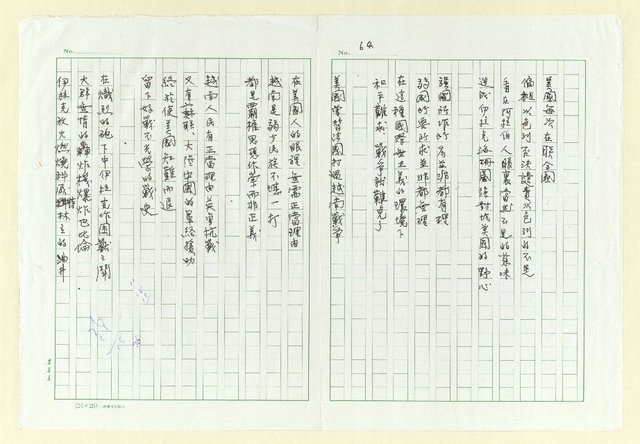 No.
64
美國每次在聯合國
偏袒以色列否決譴責以色列的不是
看在阿拉伯人眼裏當然不是的茲味
造成伊拉克海珊國強對抗美國的野心
強國所作所為並非都有理
弱國的要所求並非都無理
在這種國際無正義的環境下
和平難求、戰爭就難免了
美國曾替法國打過越南戰爭
No.
在美國人的眼裡無需正當理由
越南是弱少民族不堪一打
都是霸權思想作祟而非正義
越南人民有正當理由英勇抗戰
又有蘇聯、大陸中國的軍經援助
終於使美國知難而退
留下好戰不光榮的戰史
在熾烈的砲火下中伊拉克作困獸之鬪
大群無情的轟炸機爆炸巴比倫
伊拉克放火燃燒科威特林立的油井
(20×25)